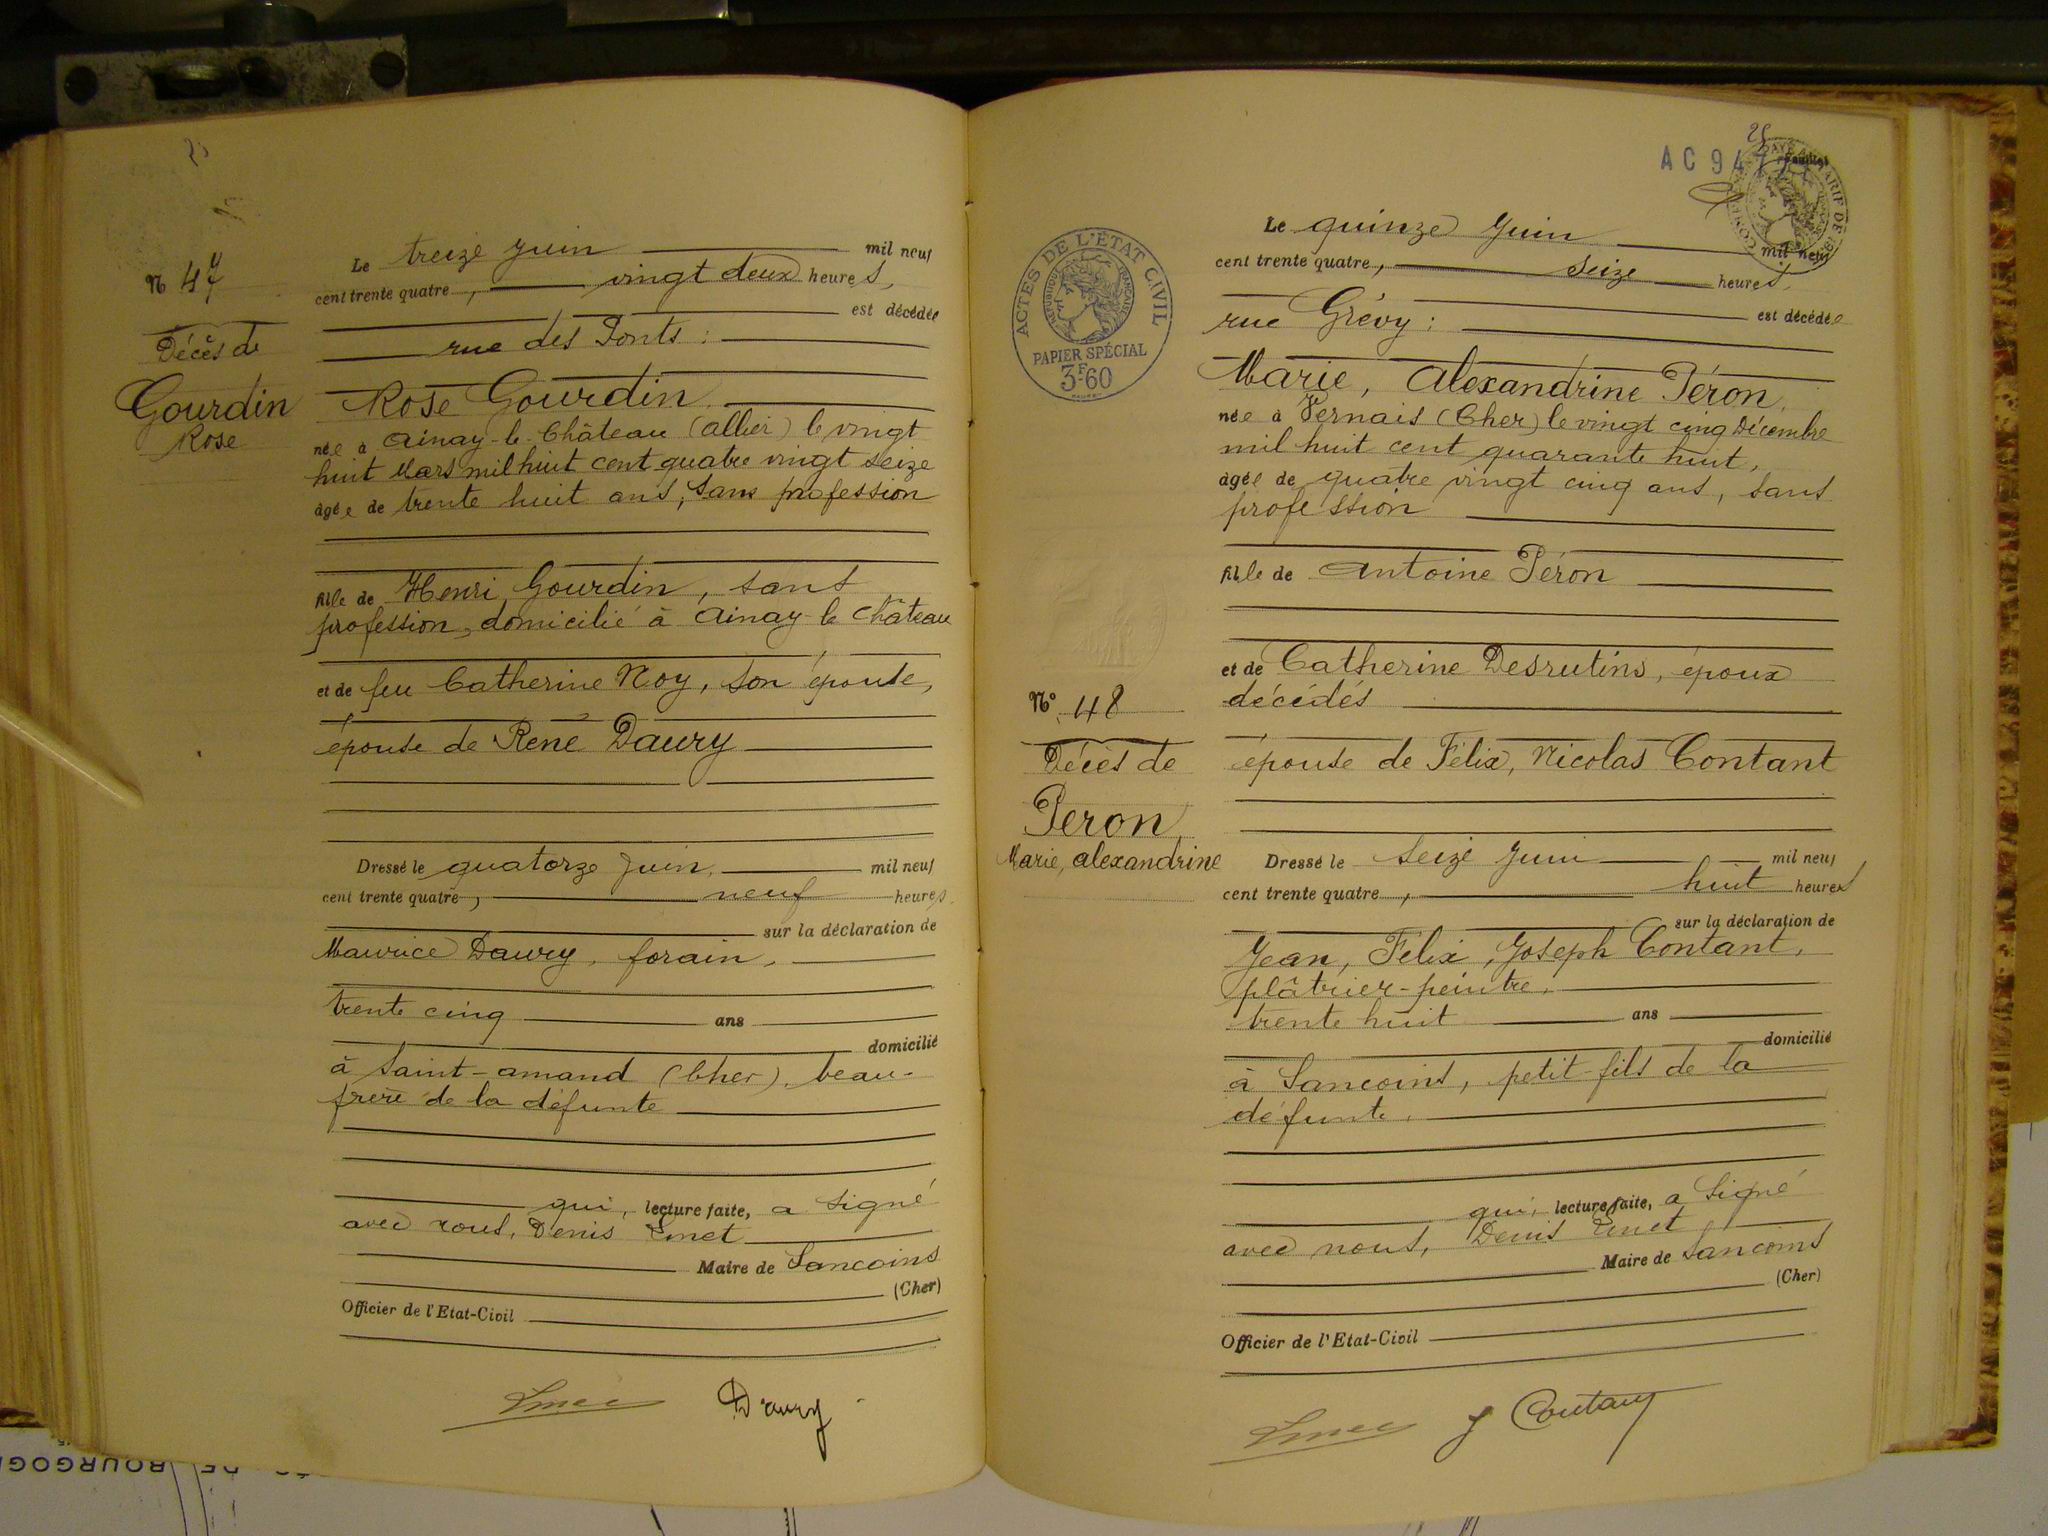 N 47
Décès de
Gourdin
Rose
Le treize Juin mil neuf
cent trente quatre, vingt deux heures,
est décédée
rue des Ponts :
Rose Gourdin
née à Ainay-le-Château (Allier) le vingt
huit Mars mil huit cent quatre vingt seize
âgée de trente huit ans, sans profession
fille de Henri Gourdin, sans
profession, domicilié à Ainay-le Château
et de feu Catherine Noy, son épouse,
épouse de René Daury
Dressé le quatorze Juin, mil neuf
cent trente quatre, neuf heures,
sur la déclaration de
Maurice Daury, forain,
trente cinq ans
domicilié
à Saint-Amand (Cher), beau-
frère de la défunte
qui, lecture faite, a signé
avec nous, Denis Emet
Maire de Sancoins
(Cher)
Officier de l'Etat-Civil
Daury
AC 947
ACTES DE L'ÉTAT CIVIL
RÉPUBLIQUE FRANÇAISE
PAPIER SPÉCIAL
3F.60
N° 48
Décès de
Peron
Marie, Alexandrine
Le quinze Juin mil neuf
cent trente quatre, seize heures,
est décédée
rue Grévy :
Marie, Alexandrine Péron,
née à Vernais (Cher) le vingt cinq Décembre
mil huit cent quarante huit,
âgée de quatre vingt cinq ans, sans
profession
fille de Antoine Péron
et de Catherine Desrutins, époux
décédés
épouse de Félix, Nicolas Contant
Dressé le seize Juin mil neuf
cent trente quatre, huit heures
sur la déclaration de
Jean, Félix, Joseph Contant,
plâtrier-peintre,
trente huit ans
domicilié
à Sancoins, petit-fils de la
défunte,
qui, lecture faite, a signé
avec nous, Denis Emet
Maire de Sancoins
(Cher)
Officier de l'Etat-Civil
J Contant
DE BOURGOG